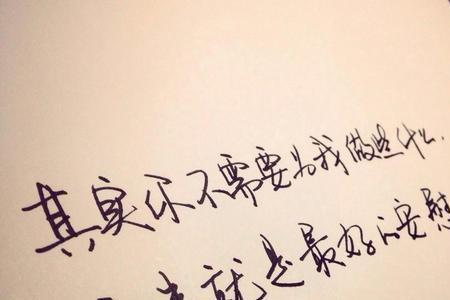 其实你不需要为我做些什么.
就是最好的安慰